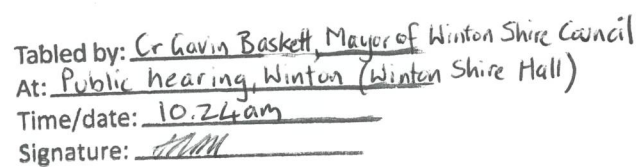 Tabled by: Cr Gavin Baskett, Mayor of Winton Shire Council
At: Public hearing, Winton (Winton Shire Hall)
Time/date: 10.24am
Signature: